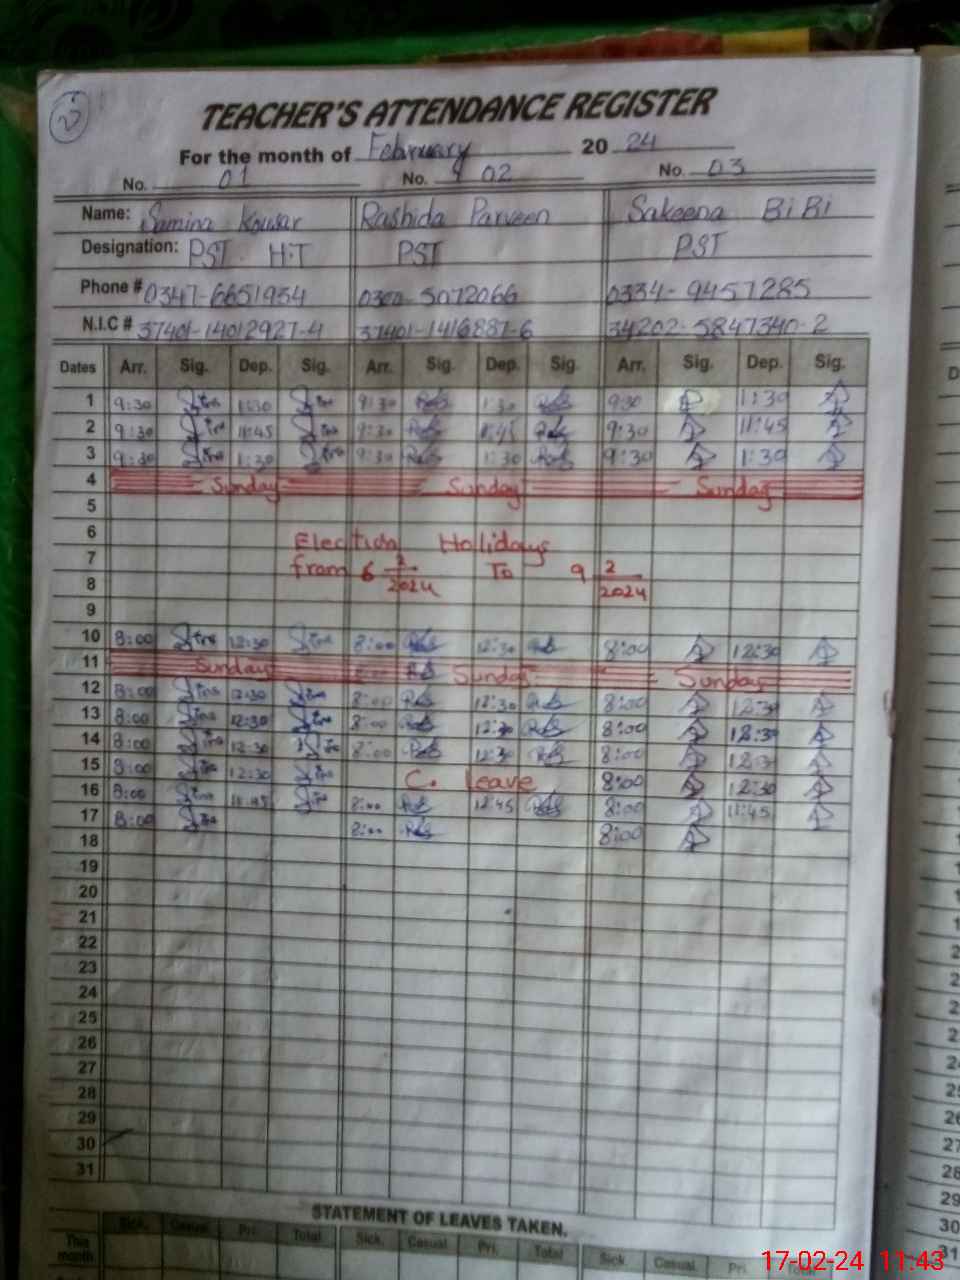 TEACHER'S ATTENDANCE REGISTER
For the month of February 20 24
No. 01 No. 02 No. 03
Name: Samina Kousar Rashida Parveen Sakeena BiBi
Designation: PST. H.T PST PST
Phone # 0347-6651954 0300-5072066 0334-9457285
N.I.C # 37401-14012927-4 37401-1416887-6 34202-5847340-2
Dates Arr. Sig. Dep. Sig. Arr. Sig. Dep. Sig. Arr. Sig. Dep. Sig.
1 9:30 1:30 9:30 1:30 9:30 1:30
2 9:30 11:45 9:30 11:45 9:30 11:45
3 9:30 1:30 9:30 1:30 9:30 1:30
4 Sunday Sunday Sunday
5
6 Election Holidays
7 from 6 2/2024 To 9 2/2024
8
9
10 8:00 12:30 8:00 12:30 8:00 12:30
11 Sunday Sunday Sunday
12 8:00 12:30 8:00 12:30 8:00 12:30
13 8:00 12:30 8:00 12:30 8:00 12:30
14 8:00 12:30 8:00 12:30 8:00 12:30
15 8:00 12:30 C. leave 8:00 12:30
16 8:00 11:45 8:00 12:45 8:00 11:45
17 8:00 8:00 8:00
18
19
20
21
22
23
24
25
26
27
28
29
30
31
STATEMENT OF LEAVES TAKEN.
Sick. Casual Pri. Total Sick. Casual Pri. Total Sick Casual Pri. Total
This month
17-02-24 11:43